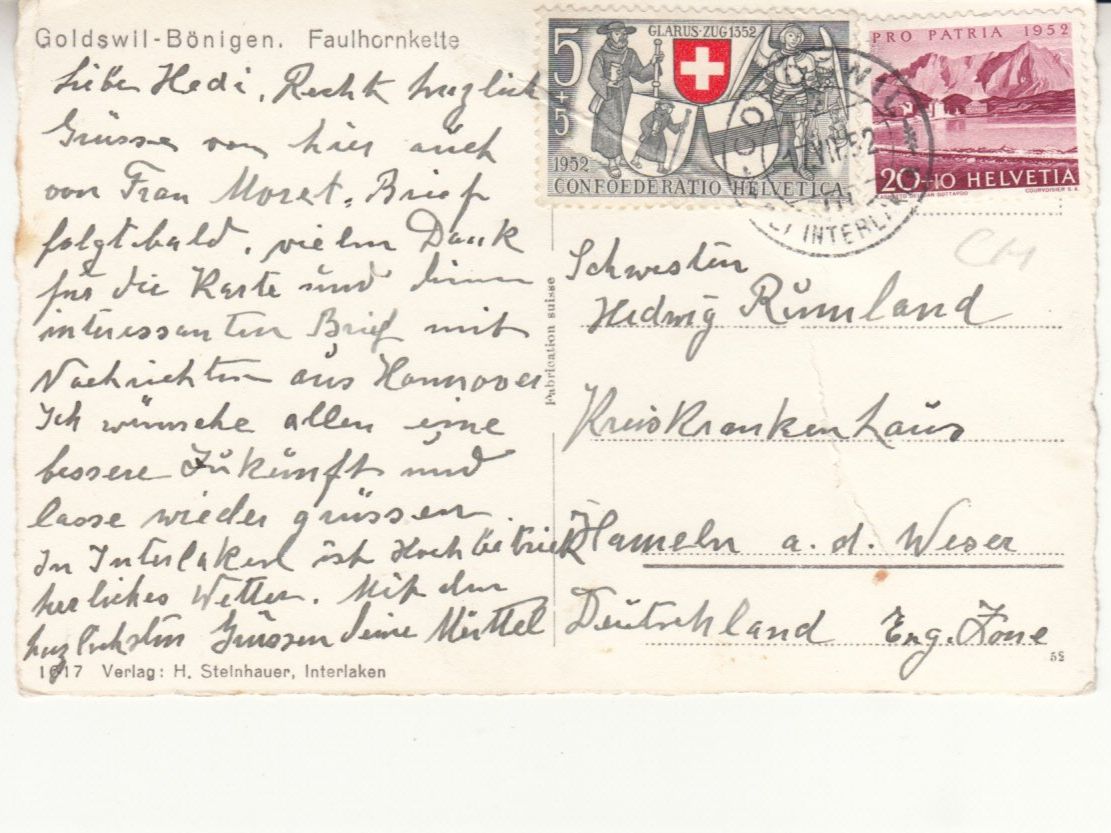 Goldswil-Bönigen. Faulhornkette
Liebe Hedi, Recht herzlich
Grüsse von hier auch
von Frau Moret. Brief
folgt bald, vielen Dank
für die Karte und deinen
interessanten Brief mit
Nachrichten aus Hannover
Ich wünsche allen eine
bessere Zukunft und
lasse wieder grüssen.
In Interlaken ist Hochbetrieb
herliches Wetter. Mit den
herzlichsten Grüssen deine
1017 Verlag: H. Steinhauer, Interlaken
Fabrication suisse
5+5
GLARUS·ZUG 1352
1952
CONFOEDERATIO HELVETICA
PRO PATRIA 1952
20+10 HELVETIA
COURVOISIER S.A.
GOLDSWIL
VII.52
INTERL
CH
Schwester
Hedwig Rümland
Kreiskrankenhaus
Hameln a. d. Weser
Deutschland Eng. Zone
52